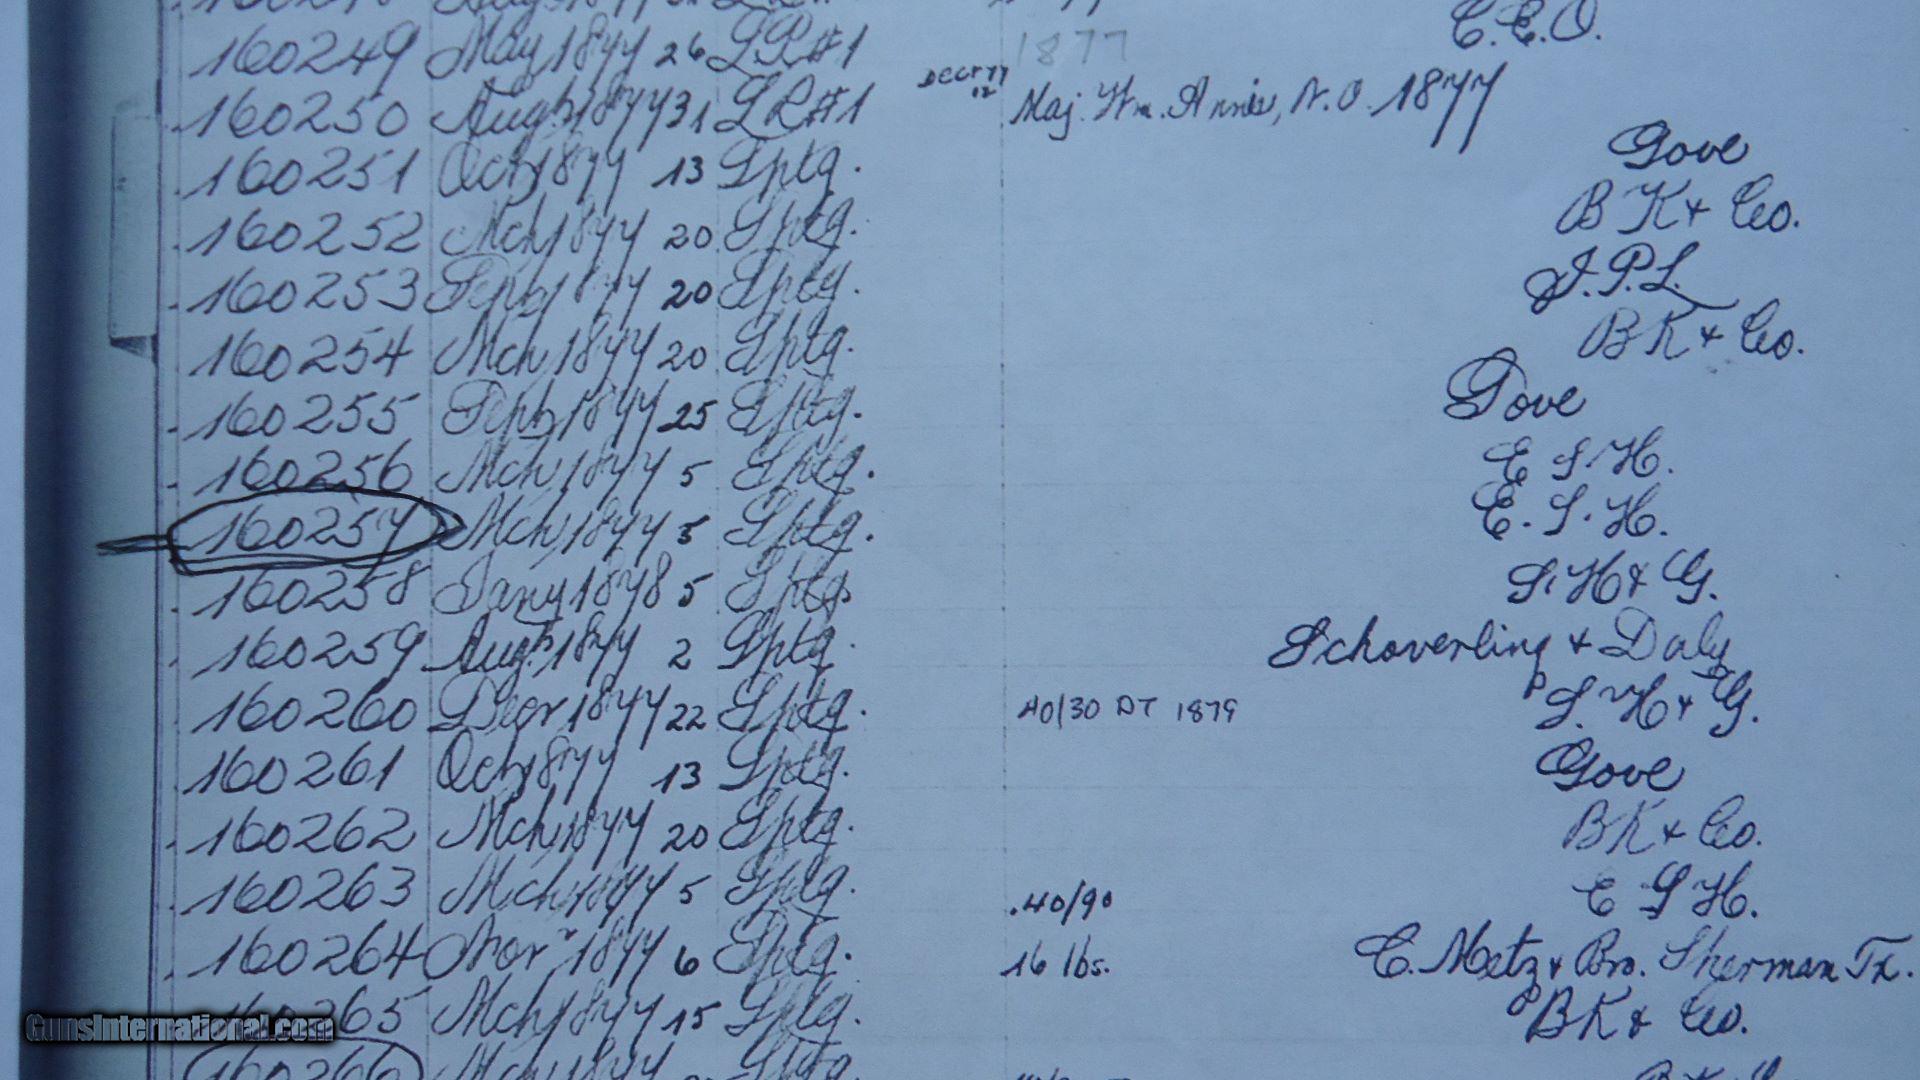 160249 May 1877 26 LR#1 1877 C.E.O.
160250 Augt 1877 31 LR#1 Decr 77 12 Maj. Wm. Annis, N.O. 1877
160251 Oct 1877 13 Sptg. Gove
160252 Mch 1877 20 Sptg. BK & Co.
160253 Feby 1877 20 Sptg. J.P.L.
160254 Mch 1877 20 Sptg. BK & Co.
160255 1877 25 Sptg. Gove
160256 Mch 1877 5 Sptg. C S H.
160257 Mch 1877 5 Sptg. C. S. H.
160258 Jany 1878 5 Sptg. S. H & G.
160259 Augt 1877 2 Sptg. Schoverling & Daly
160260 Decr 1877 22 Sptg. 40/30 DT 1879 S. H & G.
160261 Oct 1877 13 Sptg. Gove
160262 Mch 1877 20 Sptg. BK & Co.
160263 Mch 1877 5 Sptg. .40/90 C S H.
160264 Novr 1877 6 Sptg. 16 lbs. C. Metz & Bro. Sherman Tx.
160265 Mch 1877 15 Sptg. BK & Co.
GunsInternational.com
160266 Mch 1877 Sptg.